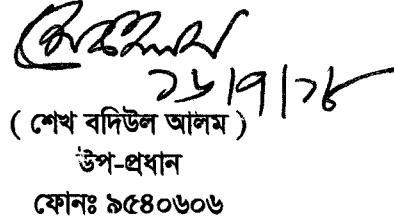 ১৬/৭/১৮
( শেখ বদিউল আলম )
উপ-প্রধান
ফোনঃ ৯৫৪০৬০৬